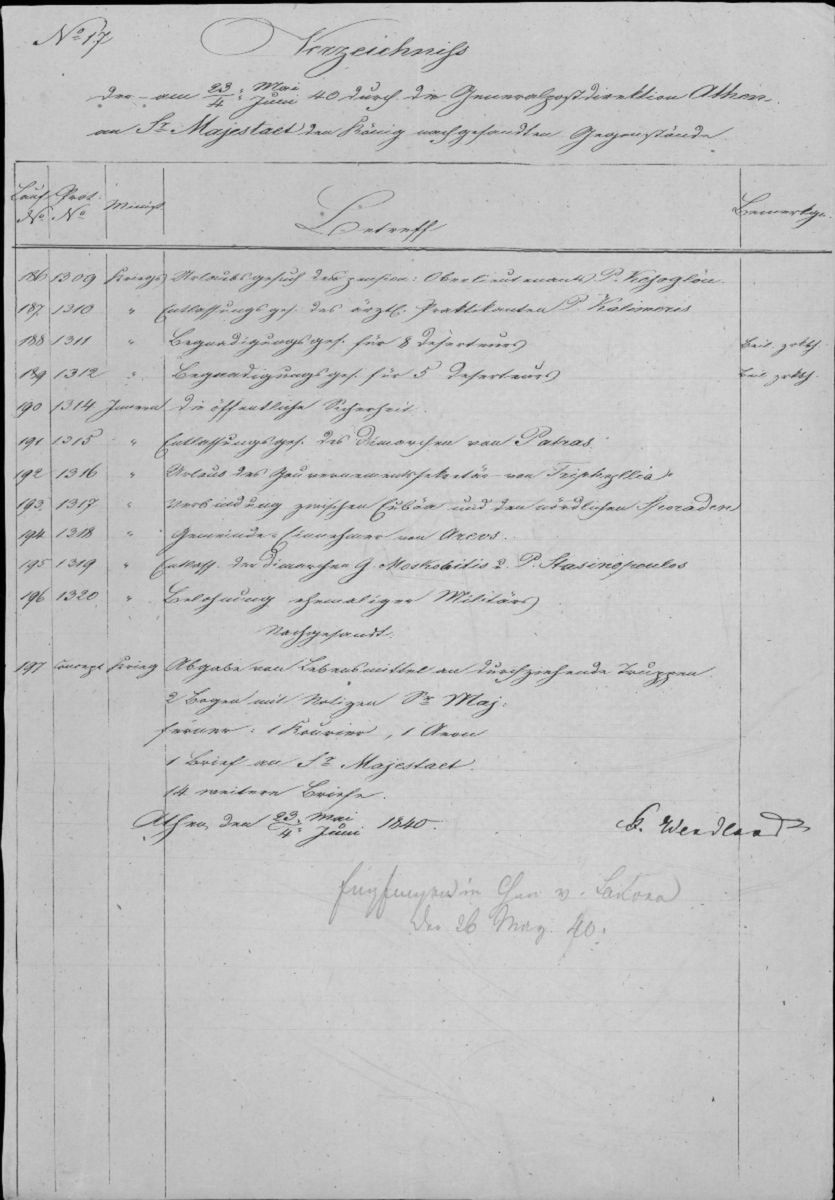 No 17
Verzeichniss
der am 23/4 Mai/Juni 40 durch die Generalpostdirektion Athen
an Sr Majestaet den König nachgesandten Gegenstände.
Lauf No Prot. No Minist Betreff Bemerkg.
186 1309 Kriegs Urlaubsgesuch des pension: Oberlieutenants P.
187 1310 " Entlassungsges. des ärztl. Praktikanten P. Kalimeris
188 1311 " Begnadigungsges. für 8 Deserteurs Beil.
189 1312 " Begnadigungsges. für 5 Deserteurs Beil.
190 1314 Innern die öffentliche Sicherheit.
191 1315 " Entlassungsges. des Dimarchen von Patras
192 1316 " Urlaub des Gouvernementssekretär von Triphyllia
193 1317 " Verbindung zwischen Euböa und den nördlichen Sporaden
194 1318 " Gemeinde-Einnehmer von
195 1319 " Entlass. der Dimarchen G. Moskovitis u. P. Stasinopoulos
196 1320 " Belohnung ehemaliger Militärs
Nachgesandt.
197 Concept Krieg Abgabe von Lebensmittel an durchziehende Truppen
2 Bogen mit Notizen Sr Maj:
ferner: 1 Kourier, 1 Aeon
1 Brief an Sr Majestaet.
14 weitere Briefe.
Athen, den 23./4. Mai/Juni 1840.
Wendland
in Chan v.
den 26 May 40.